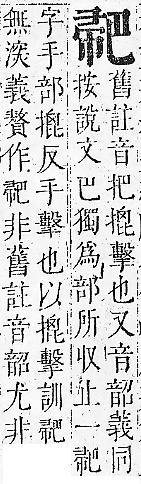 舊註音把𢱧擊也又音韶義同
按說文巴獨爲部所収止一
字手部𢱧反手擊也以𢱧擊訓
無深義贅作非舊註音韶尤非